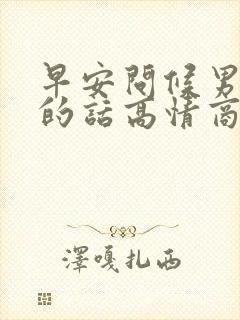 早安問候男
的話高情商
澤嘎扎西